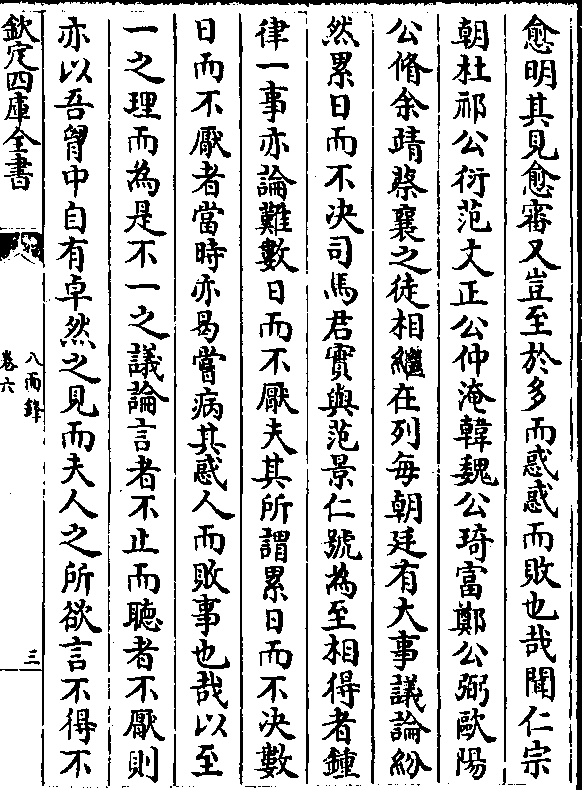 愈明其見愈審又豈至於多而惑惑而敗也哉聞仁宗
朝杜祁公衍范文正公仲淹韓魏公琦富鄭公弼歐陽
公脩余靖蔡襄之徒相繼在列每朝廷有大事議論紛
然累日而不决司馬君實與范景仁號為至相得者鍾
律一事亦論難數日而不厭夫其所謂累日而不决數
日而不厭者當時亦曷嘗病其惑人而敗事也哉以至
一之理而為是不一之議論言者不止而聽者不厭則
亦以吾胷中自有卓然之見而夫人之所欲言不得不
欽定四庫全書
八面鋒
卷六
三